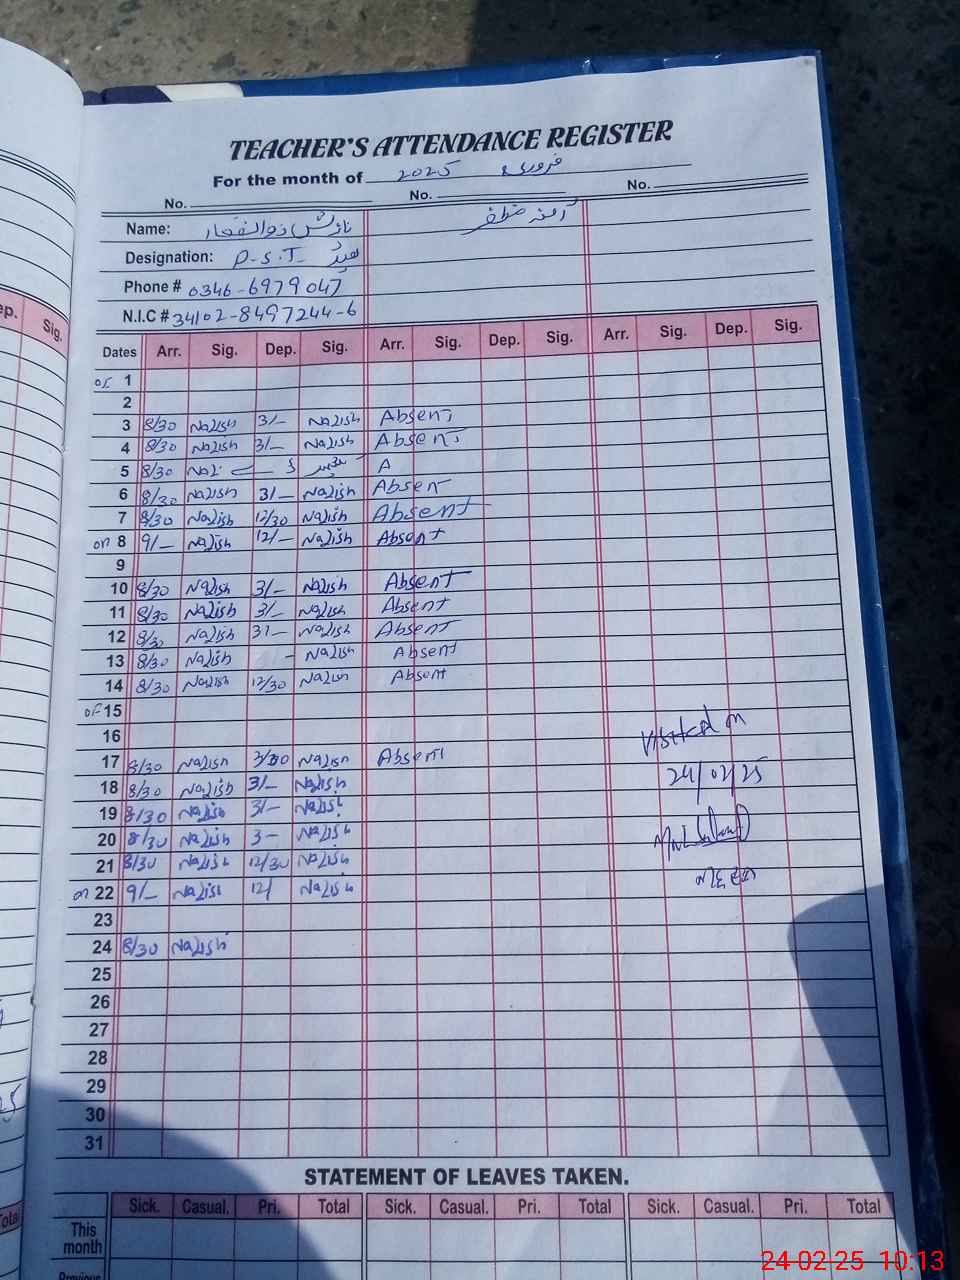 TEACHER'S ATTENDANCE REGISTER
For the month of 2025 فروری
No. No. No.
Name: نازش ذوالفقار آمنہ مظفر
Designation: P.S.T ہیڈ
Phone # 0346-6979047
N.I.C # 34102-8497244-6
Dates Arr. Sig. Dep. Sig. Arr. Sig. Dep. Sig. Arr. Sig. Dep. Sig.
1
2
3 8/30 Nazish 3/- Nazish Absent
4 8/30 Nazish 3/- Nazish Absent
5 8/30 A
6 8/30 Nazish 3/- Nazish Absent
7 8/30 Nazish 12/30 Nazish Absent
on 8 9/- Nazish 12/- Nazish Absent
9
10 8/30 Nazish 3/- Nazish Absent
11 8/30 Nazish 3/- Nazish Absent
12 8/30 Nazish 3/- Nazish Absent
13 8/30 Nazish - Nazish Absent
14 8/30 Nazish 12/30 Nazish Absent
of 15
16
17 8/30 Nazish 3/30 Nazish Absent
18 8/30 Nazish 3/- Nazish
19 8/30 Nazish 3/- Nazish
20 8/30 Nazish 3- Nazish
21 8/30 Nazish 12/30 Nazish
on 22 9/- Nazish 12/ Nazish
23
24 8/30 Nazish
25
26
27
28
29
30
31
Visited on
24/02/25
STATEMENT OF LEAVES TAKEN.
Sick. Casual. Pri. Total Sick. Casual. Pri. Total Sick. Casual. Pri. Total
This
month
24-02-25 10:13